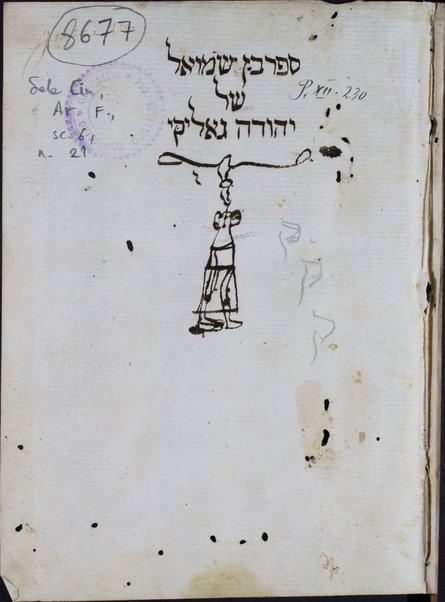 8677
ספר בן שמואל
של
יהודה גאליקי
P. XII. 230
Sala Cin,
Ar. F.,
sc. 6,
n. 21
ק
ק
ק